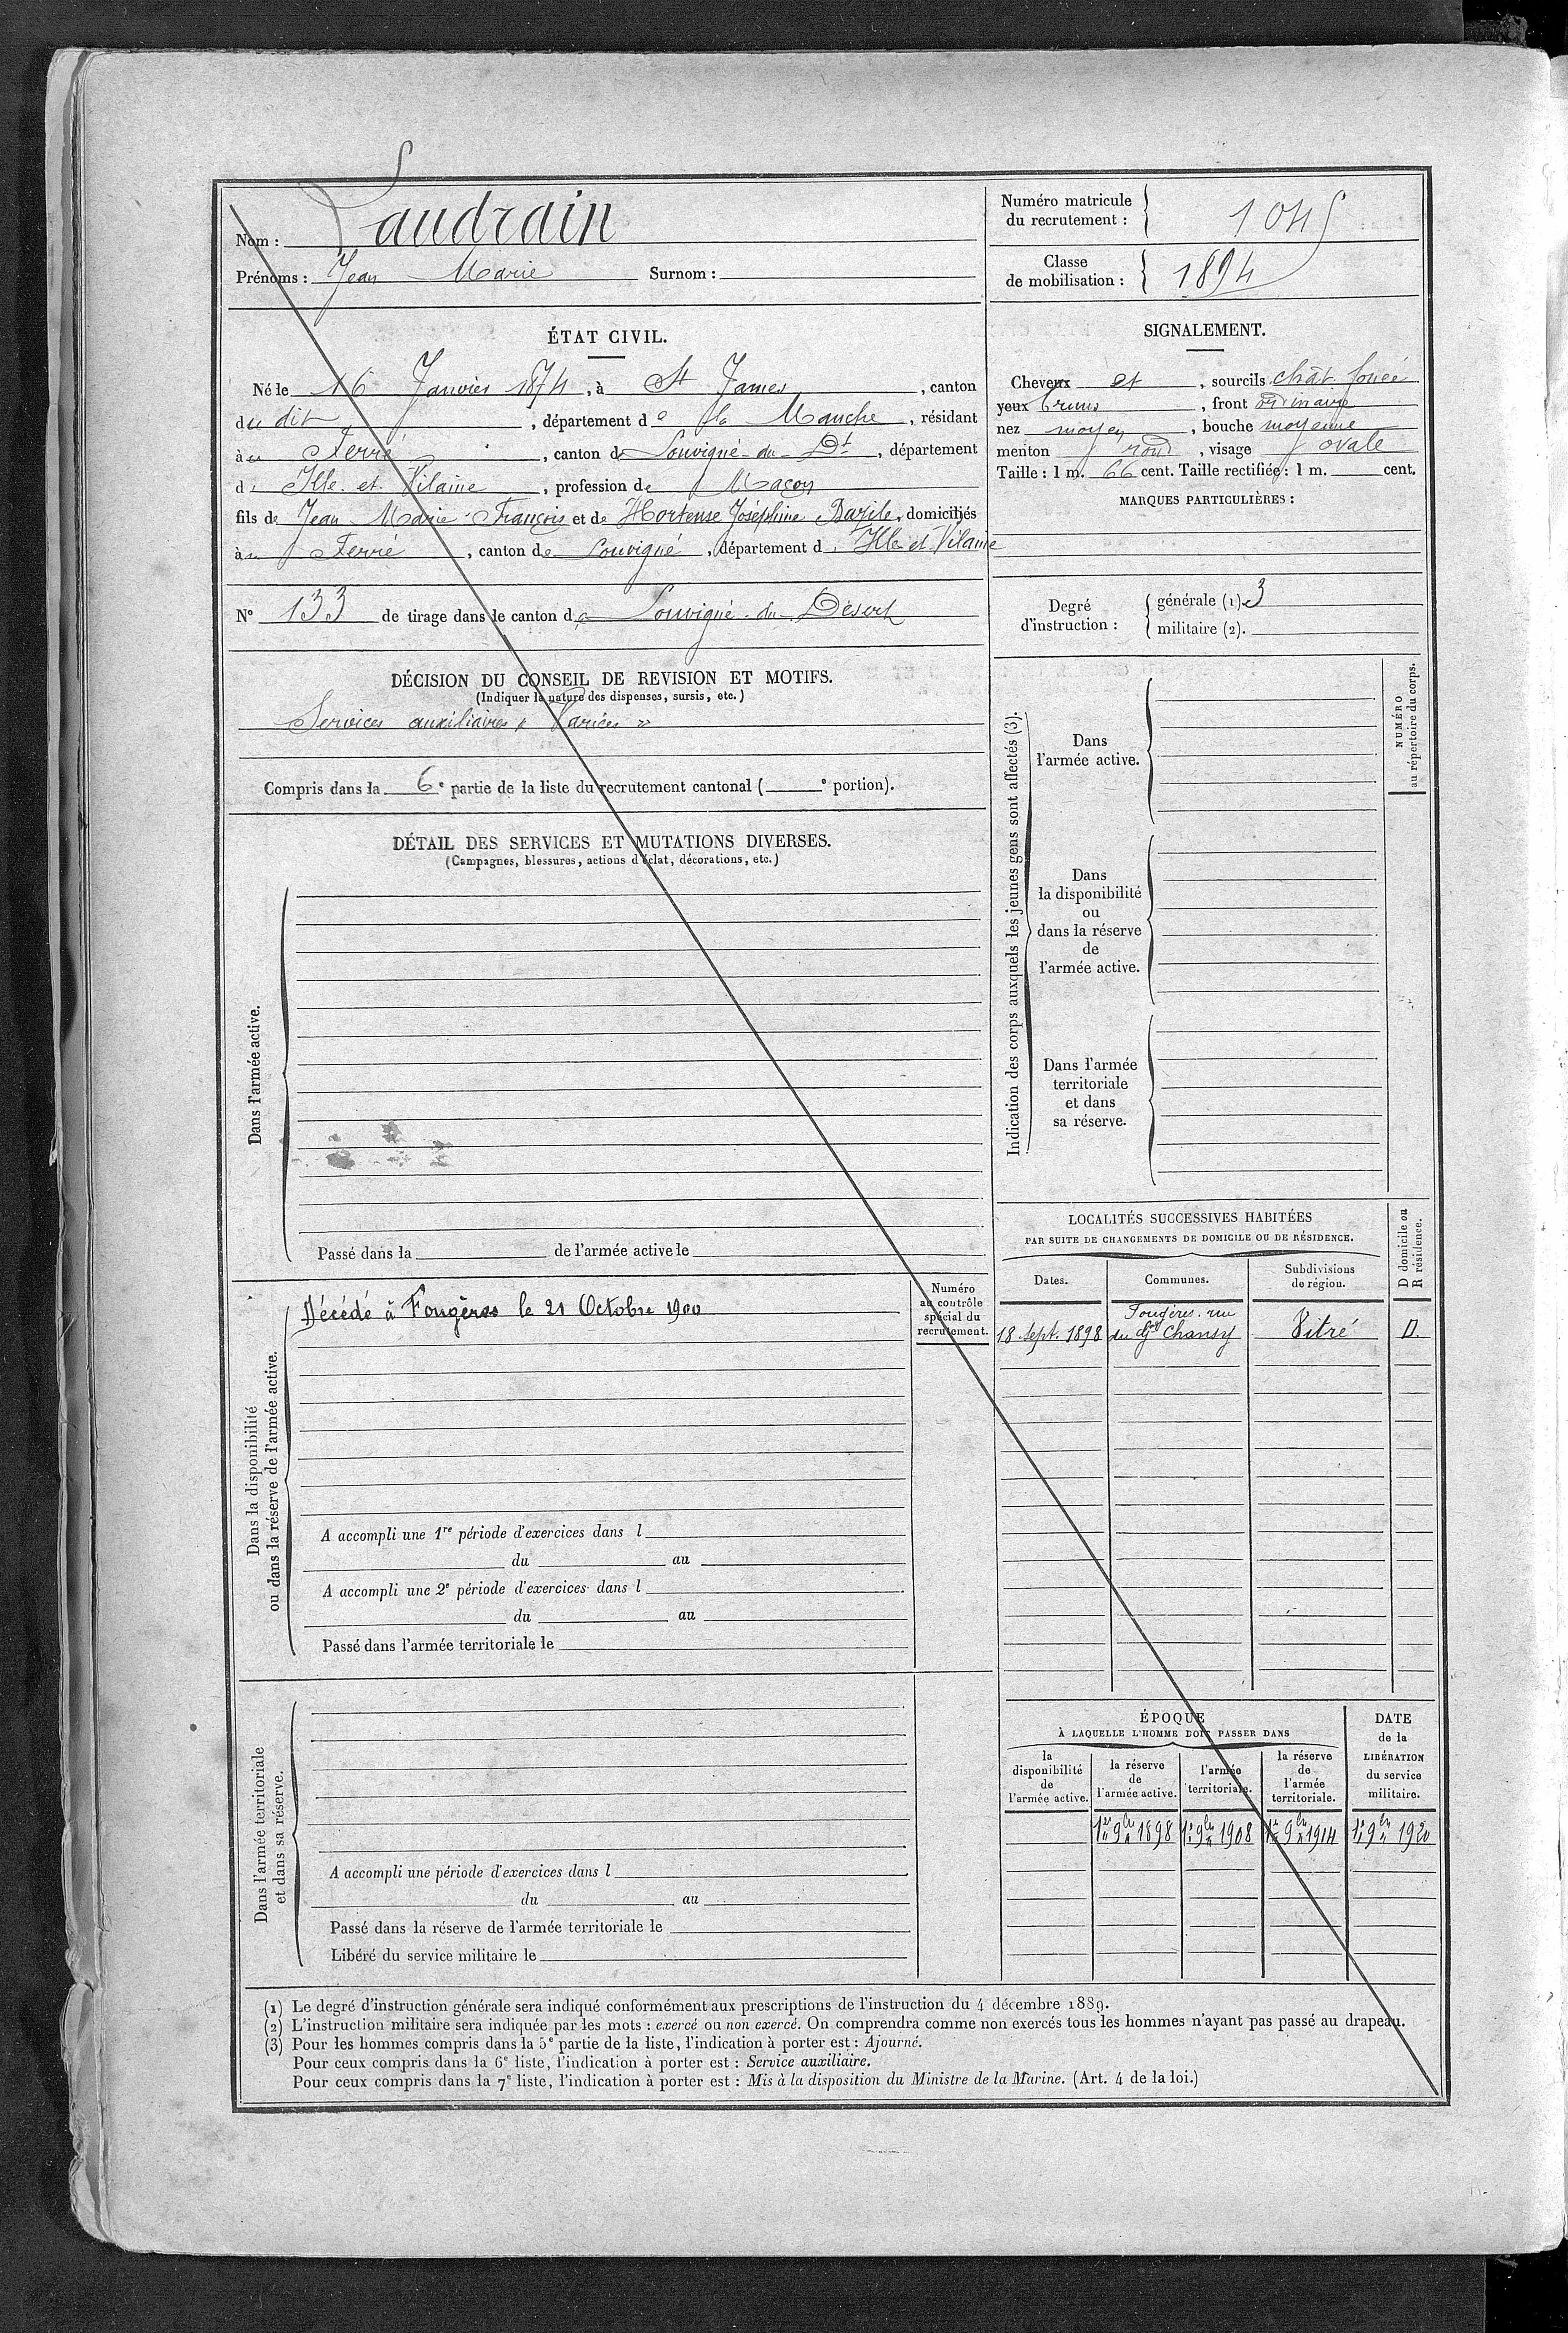 Nom : Laudrain
Prénoms : Jean Marie Surnom :
Numéro matricule du recrutement : 1045
Classe de mobilisation : 1894
ÉTAT CIVIL.
Né le 16 Janvier 1874, à St James, canton
du dit, département de la Manche, résidant
au Ferré, canton de Louvigné-du-Dt, département
d'Ille-et-Vilaine, profession de Maçon
fils de Jean Marie François et de Hortense Joséphine Bazile, domiciliés
au Ferré, canton de Louvigné, département d'Ille et Vilaine
N° 133 de tirage dans le canton de Louvigné-du-Désert
SIGNALEMENT.
Cheveux et, sourcils chât. foncé
yeux bruns, front ordinaire
nez moyen, bouche moyenne
menton rond, visage ovale
Taille : 1 m. 66 cent. Taille rectifiée : 1 m. cent.
MARQUES PARTICULIÈRES :
Degré d'instruction : générale (1). 3
militaire (2).
DÉCISION DU CONSEIL DE REVISION ET MOTIFS.
(Indiquer la nature des dispenses, sursis, etc.)
Services auxiliaires « Varices »
Compris dans la 6e partie de la liste du recrutement cantonal ( e portion).
DÉTAIL DES SERVICES ET MUTATIONS DIVERSES.
(Campagnes, blessures, actions d'éclat, décorations, etc.)
Dans l'armée active.
Passé dans la de l'armée active le
Indication des corps auxquels les jeunes gens sont affectés (3).
Dans
l'armée active.
Dans
la disponibilité
ou
dans la réserve
de
l'armée active.
Dans l'armée
territoriale
et dans
sa réserve.
NUMÉRO
au répertoire du corps.
LOCALITÉS SUCCESSIVES HABITÉES
PAR SUITE DE CHANGEMENTS DE DOMICILE OU DE RÉSIDENCE.
Dates. Communes. Subdivisions de région. D domicile ou R résidence.
18 Sept. 1898 Fougères. rue du Gal Chanzy Vitré D.
Dans la disponibilité
ou dans la réserve de l'armée active.
Numéro
au contrôle
spécial du
recrutement.
Décédé à Fougères le 21 Octobre 1900
A accompli une 1re période d'exercices dans l
du au
A accompli une 2e période d'exercices dans l
du au
Passé dans l'armée territoriale le
Dans l'armée territoriale
et dans sa réserve.
A accompli une période d'exercices dans l
du au
Passé dans la réserve de l'armée territoriale le
Libéré du service militaire le
ÉPOQUE
À LAQUELLE L'HOMME DOIT PASSER DANS
la disponibilité de l'armée active.
la réserve de l'armée active.
l'armée territoriale.
la réserve de l'armée territoriale.
DATE
de la
LIBÉRATION
du service
militaire.
1er 9bre 1898 1er 9bre 1908 1er 9bre 1914 1er 9bre 1920
(1) Le degré d'instruction générale sera indiqué conformément aux prescriptions de l'instruction du 4 décembre 1889.
(2) L'instruction militaire sera indiquée par les mots : exercé ou non exercé. On comprendra comme non exercés tous les hommes n'ayant pas passé au drapeau.
(3) Pour les hommes compris dans la 5e partie de la liste, l'indication à porter est : Ajourné.
Pour ceux compris dans la 6e liste, l'indication à porter est : Service auxiliaire.
Pour ceux compris dans la 7e liste, l'indication à porter est : Mis à la disposition du Ministre de la Marine. (Art. 4 de la loi.)